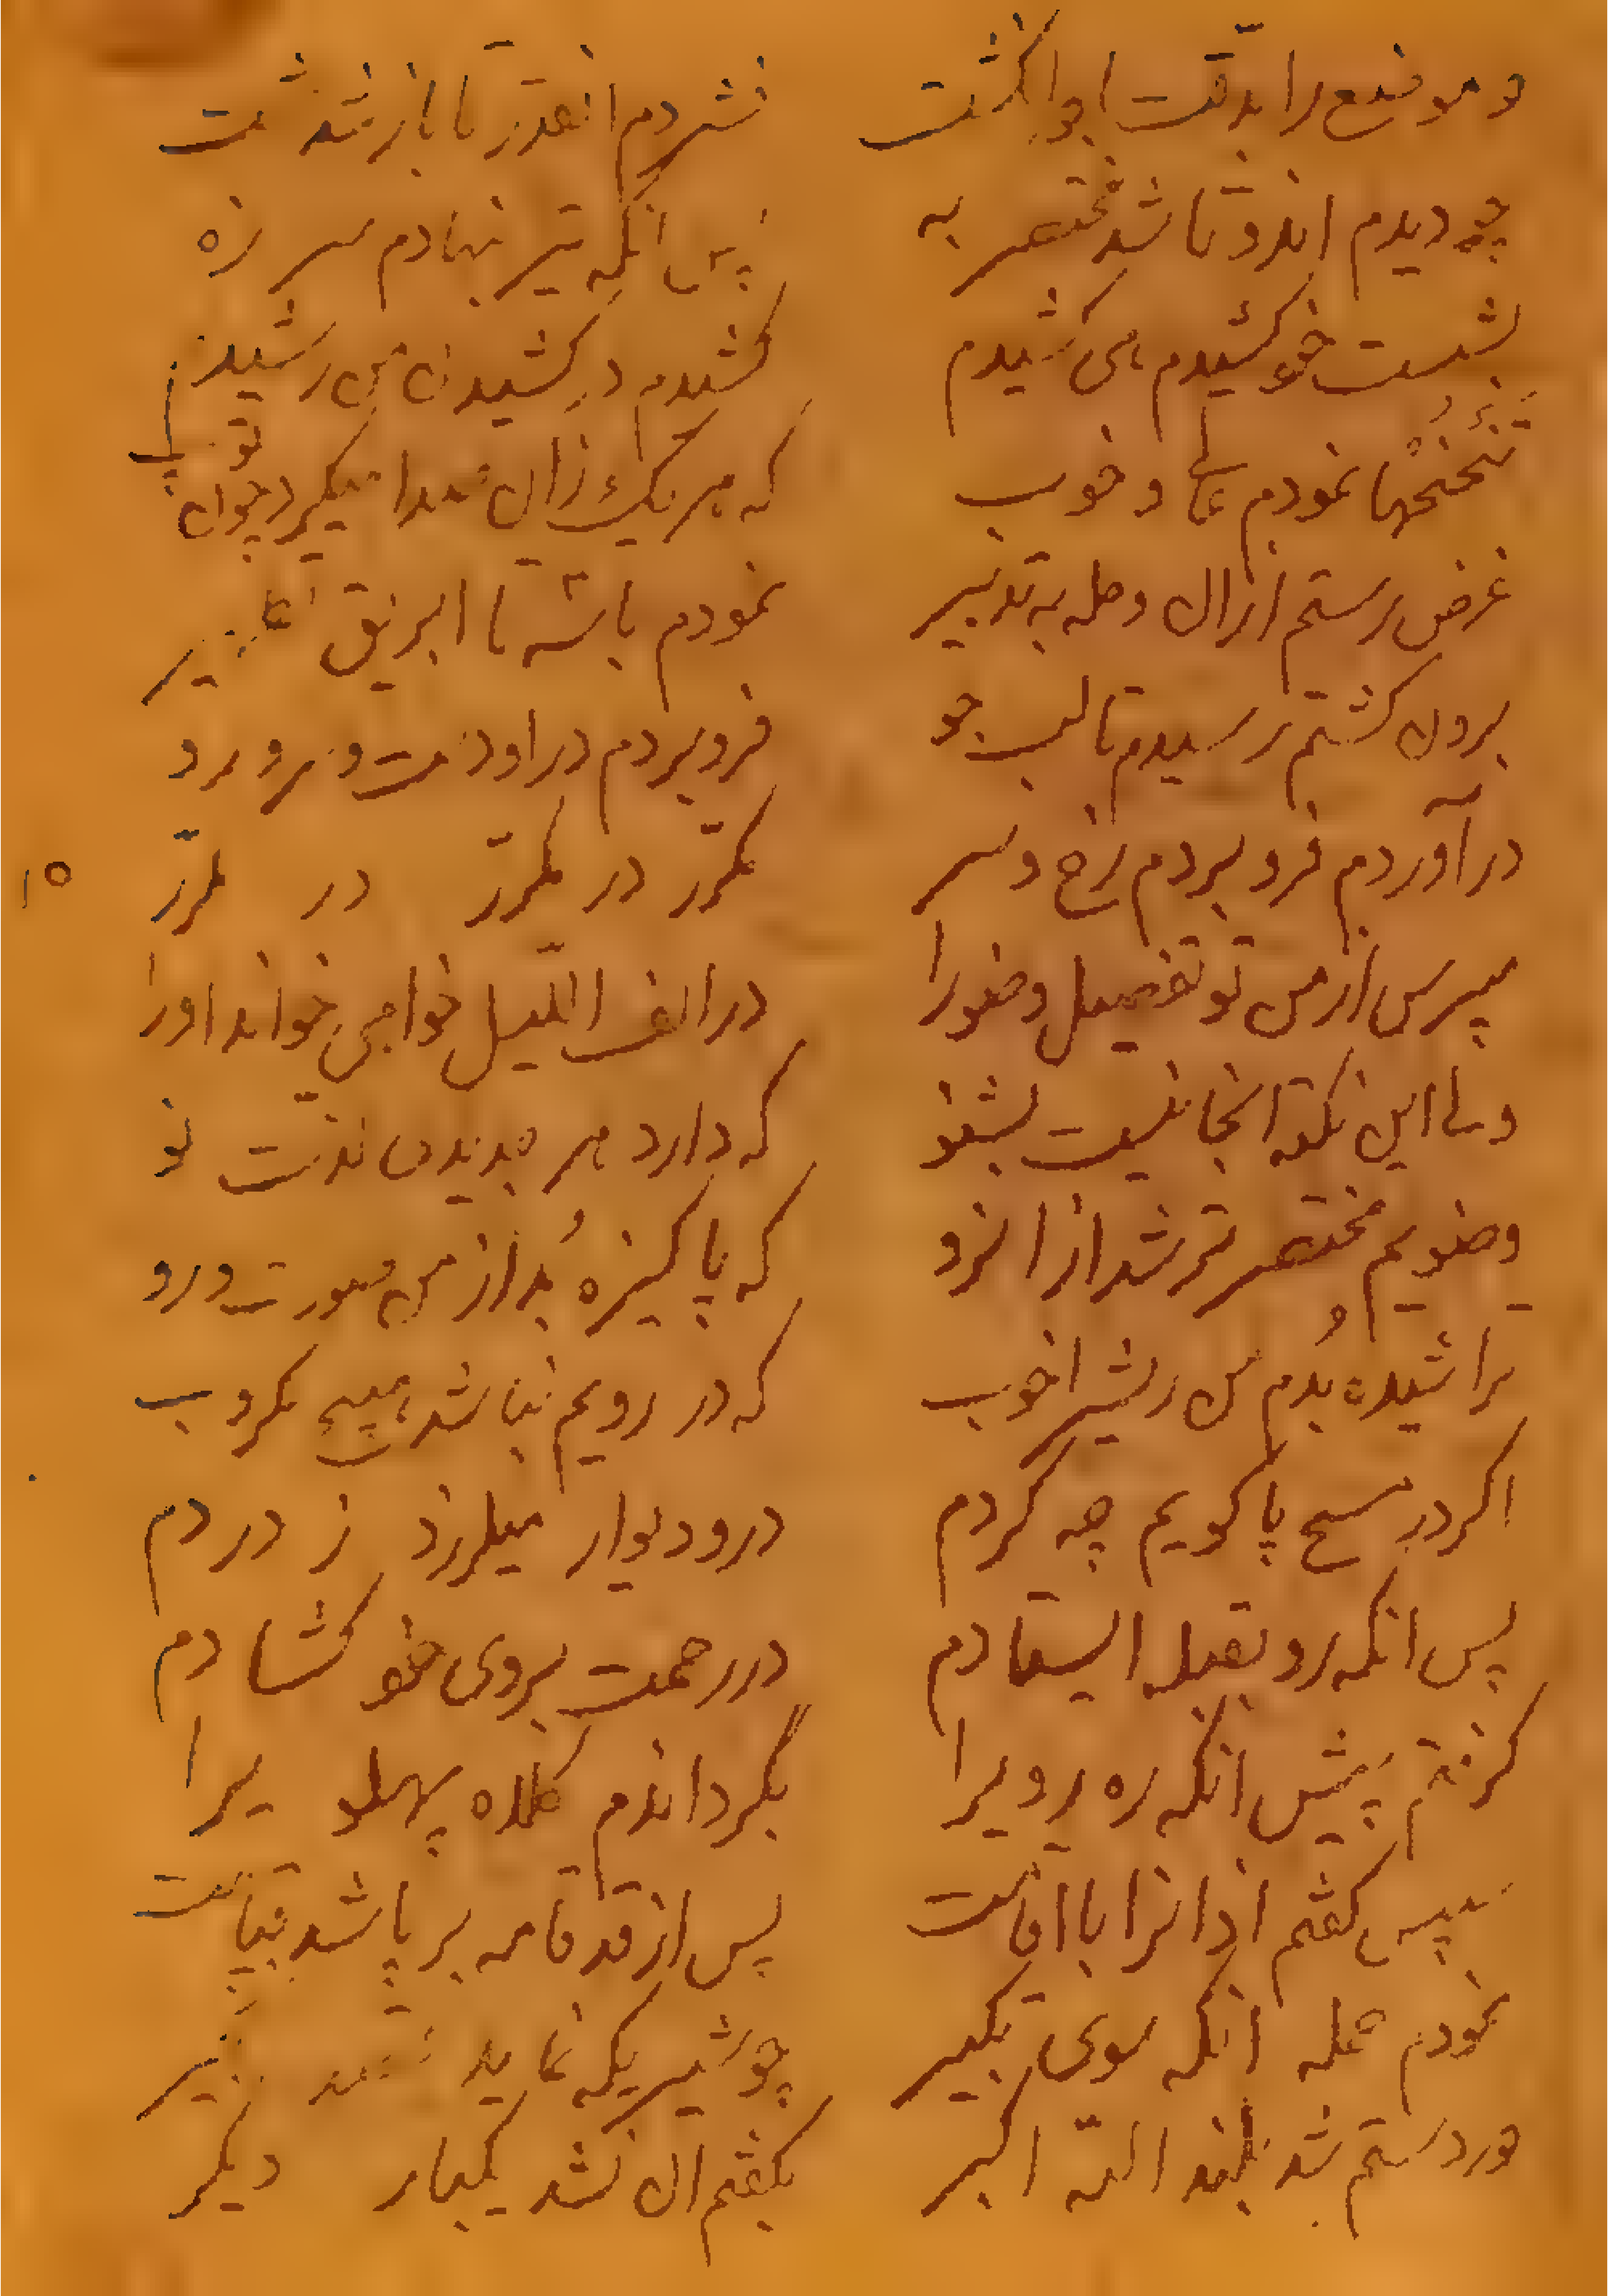 دو موضع را بدقت با دو انگشت فشردم انقدر تا باز شد مشت
چو دیدم اندو تا شد مختصر به پس انگه تیر بنهادم سر زه
بشست خو کشیدم می کشیدم کشیدم در کشیدن می رشیدم
تنحنحها نمودم عالی و خوب که هر یک زان صدا میکرد چون توپ
غرض رستم ازان وحله به تدبیر نمودم باسه تا ابریق
برون گشتم رسیدم تا لب جو فرو بردم در او دست و سر و رو
در آوردم فرو بردم رخ و سر مکرّر در مکرّر در مکرّر
مپرس از من تو تفصیل وضورا در الف اللّیل خواهی خواند اورا
ولی این نکته انجا نیست بشنو که دارد هر جدیدی لذّت نو
وضویم مختصر تر شد ازانرو که پاکیزه بُد از من صورت و رو
تراشیده بُدم من ریش را خوب که در رویم نباشد هیچ مکروب
اگر در مسح پا گویم چه کردم در و دیوار میلرزد ز دردم
پس انگه رو بقبله ایستادم در رحمت بروی خو گشادم
گرفتم پیش انگه ره برویرا بگرداندم کلاه پهلویرا
سپس گفتم اذانرا با اقامت پس از قد قامه بر پا شد قیامت
نمودم حمله انگه سوی تکبیر چو شیریکه نماید قصد
دو دستم شد بلند اللّه اکبر بگفتم ان نشد یکبار دیگر
۱۵